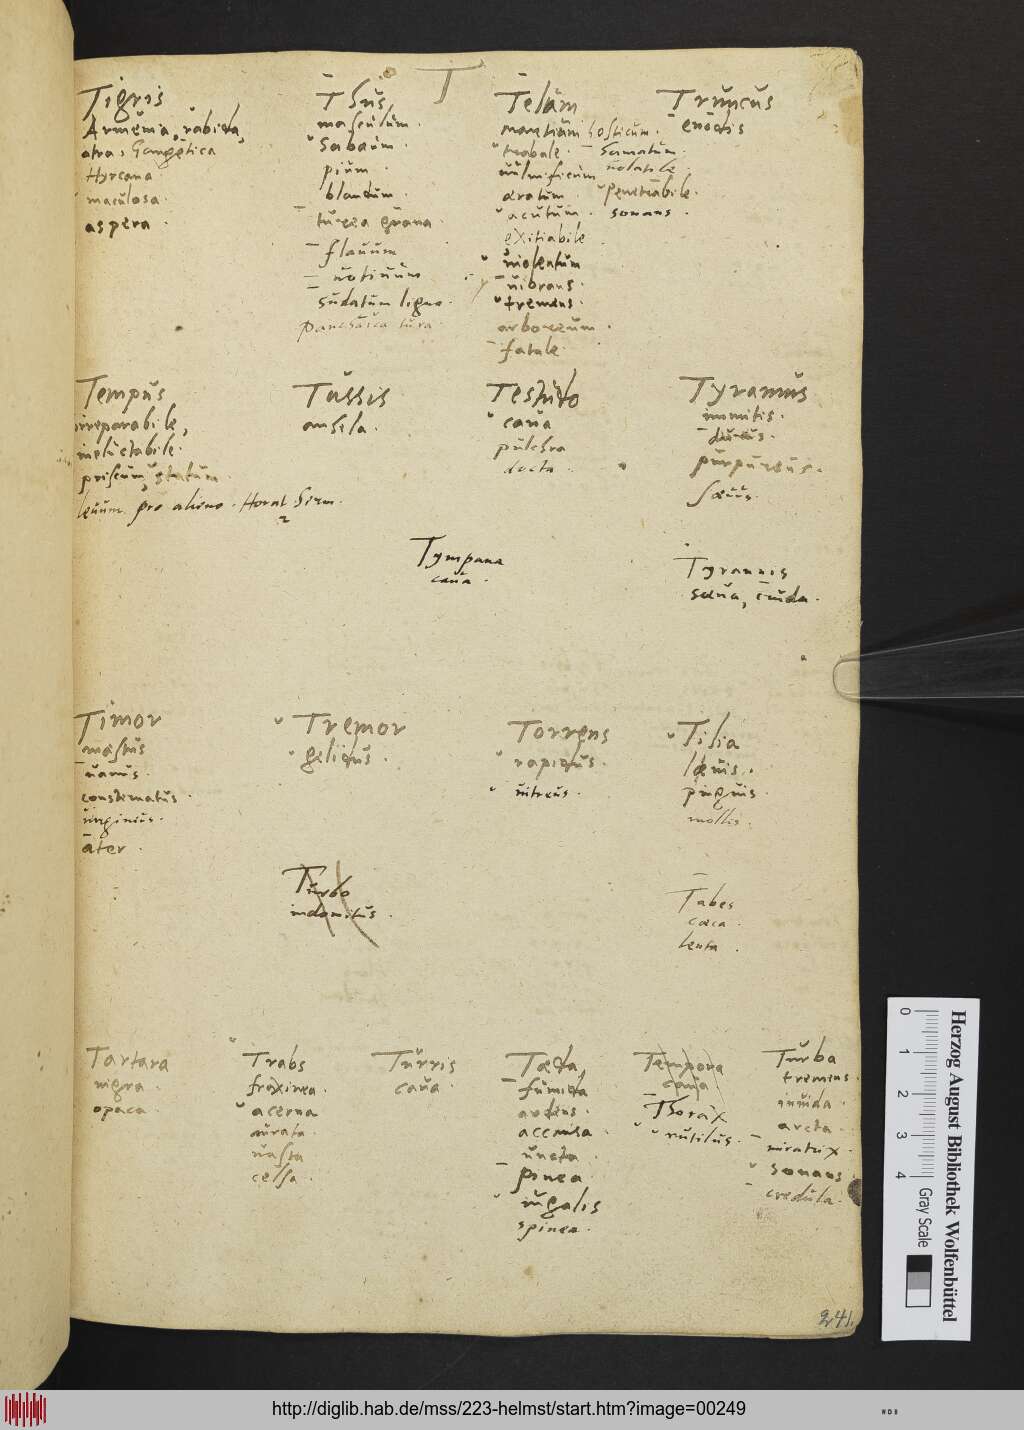 T
Tigris
Armenia, rabida,
atra, Gangetica
Hyrcana
maculosa
aspera
Thus,
masculum.
Sabæum.
pium.
blandum
turea grana
flauum
sudatum ligno.
panchaica tura
Telum
hosticum.
trabale. hamatum.
uulnificum uolatile
æratum. penetrabile.
acutum. sonans.
exitiabile
uiolentum
uibrans.
tremens.
arboreum.
fatale
Truncus
enodis
Tempus
irreparabile,
ineluctabile.
priscum, statum
leuum. pro alieno. Horat. Serm.
2
Tussis
anhela.
Testudo
caua
pulchra
docta.
Tyrannus
immitis.
durus.
purpureus.
sæuus.
Tympana
caua.
Tyrannis
sæua, cruda.
Timor
mæstus
uanus.
consternatus.
uirgineus.
ater.
Tremor
gelidus.
Torrens
rapidus.
uitreus.
Tilia
læuis.
pinguis
mollis.
Turbo
indomitus.
Tabes
cæca.
lenta.
Tartara
nigra.
opaca.
Trabs
fraxinea.
acerna
aurata.
uasta
celsa.
Turris
caua.
Tæda,
fumida
ardens.
accensa.
uncta.
pinea.
iugalis
spinea.
Tempora
cana
Thorax
rutilus.
Turba
tremens.
inuida.
arcta.
miratrix.
sonans
credula.
241.
0 1 2 3 4
Gray Scale
Herzog August Bibliothek Wolfenbüttel
http://diglib.hab.de/mss/223-helmst/start.htm?image=00249